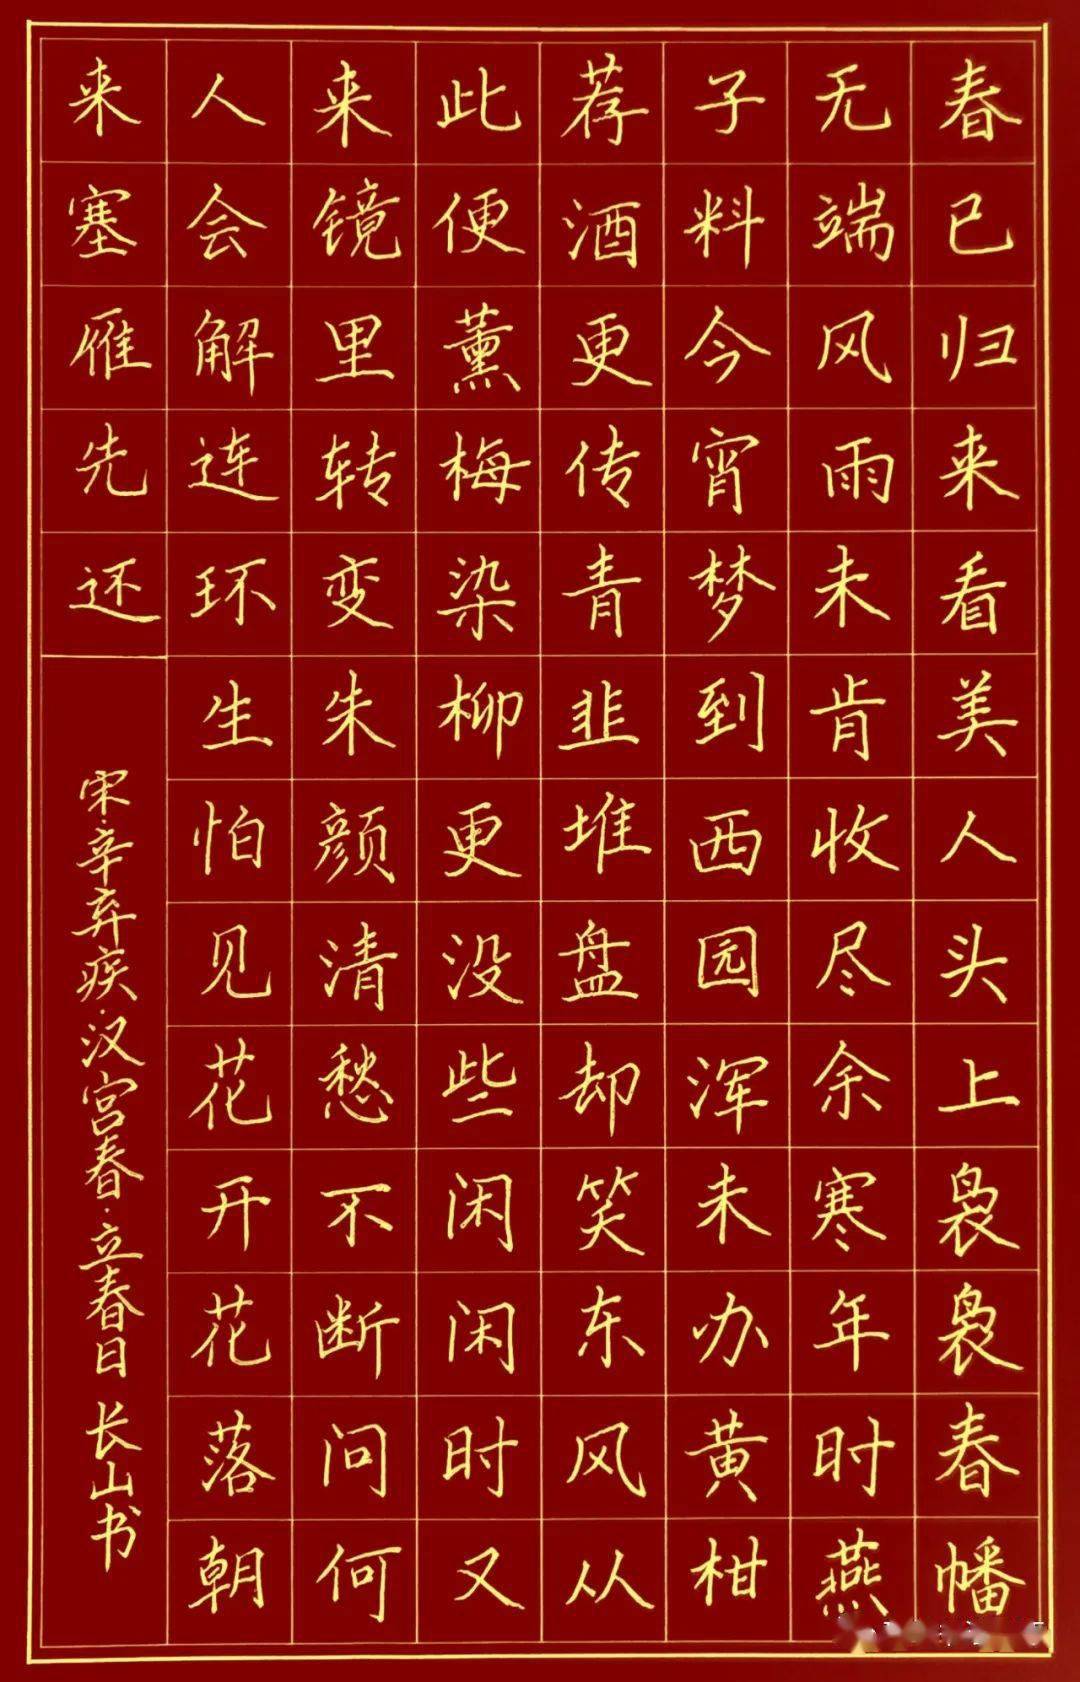 春已归来看美人头上袅袅春幡
无端风雨未肯收尽余寒年时燕
子料今宵梦到西园浑未办黄柑
荐酒更传青韭堆盘却笑东风从
此便薰梅染柳更没些闲闲时又
来镜里转变朱颜清愁不断问何
人会解连环生怕见花开花落朝
来塞雁先还
宋·辛弃疾·汉宫春·立春日 长山书